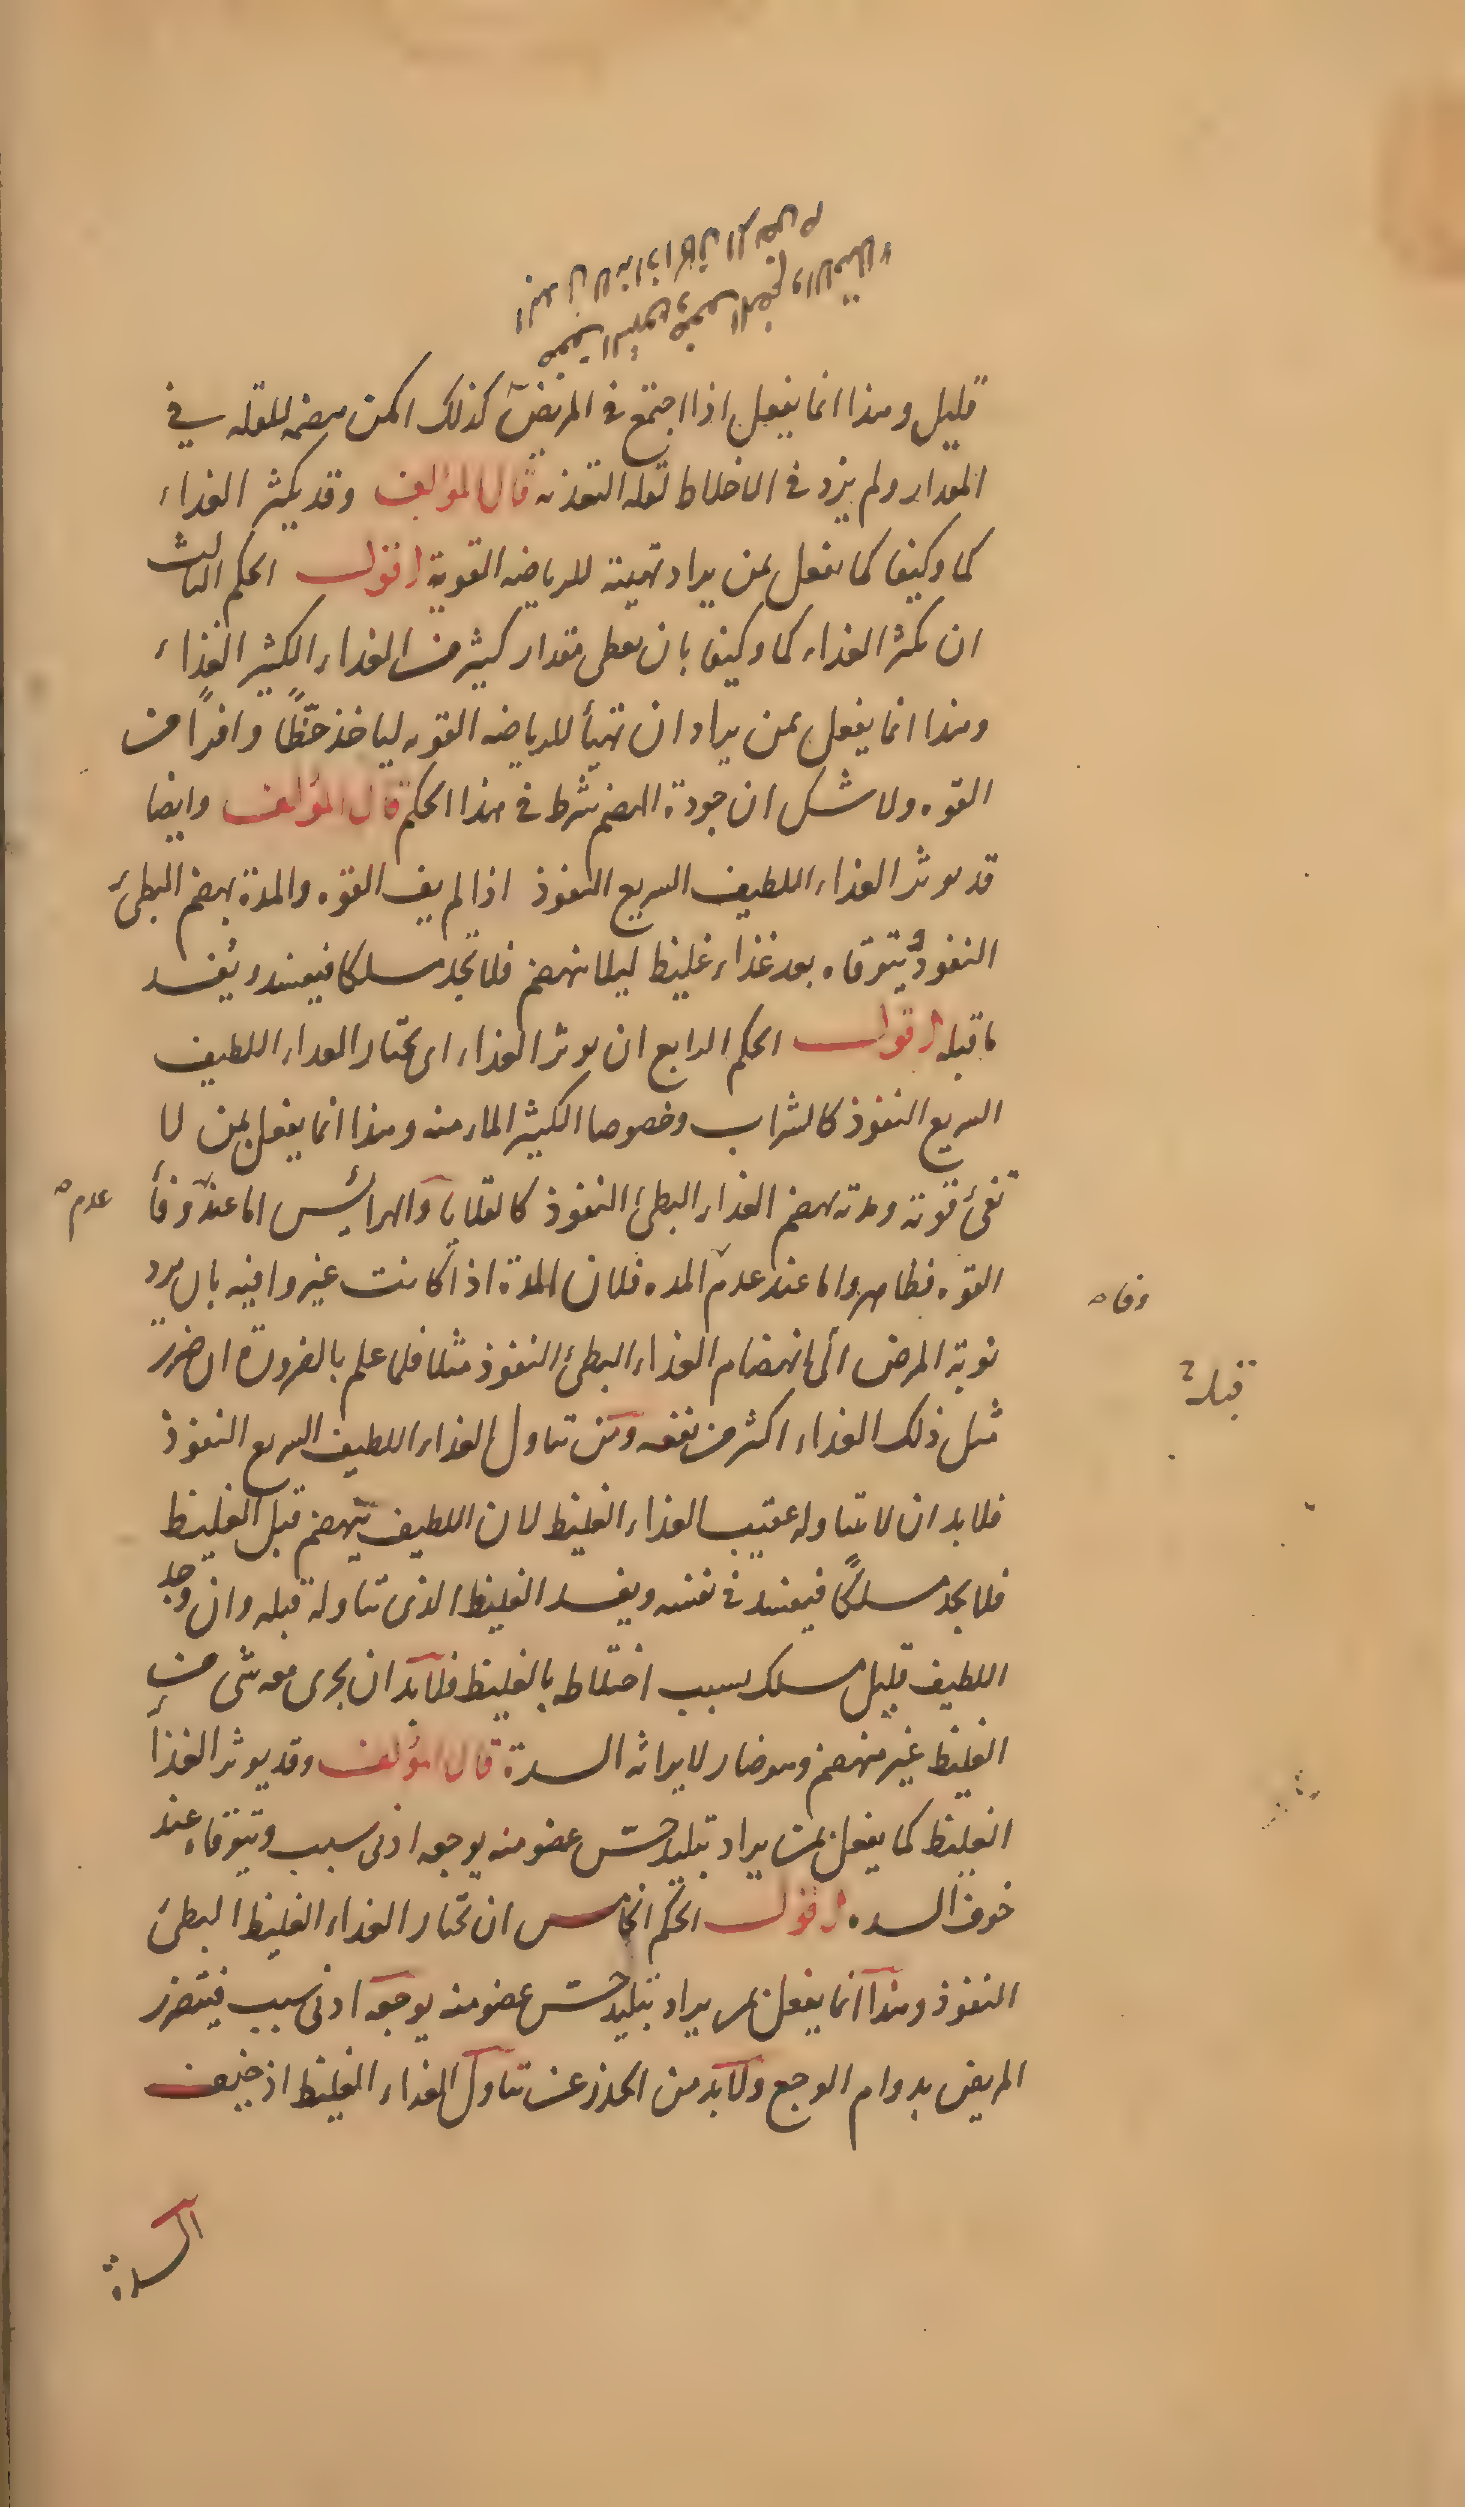 قليل وهذا انما يفعل اذا اجتمع فى المريض كذلك امكن هضمه للقله في
المقدار ولم يزد فى الاخلاط لقله التغذيه قال المؤلف وقد يكثر الغذاء
كما وكيفا كما يفعل بمن يراد تهيئة للرياضه القوية اقول الحكم الثالث
ان يكثر الغذاء كما وكيفا بان يعطى مقدار كثير من الغذاء الكثير الغذاء
وهذا انما يفعل بمن يراد ان تهيأ للرياضه القويه لياخذ حظًا وافرًا من
القوه ولا شك ان جودة الهضم شرط فى هذا الحكم قال المؤلف وايضا
قد يوثر الغذاء اللطيف السريع النفوذ اذا لم يف القوه والمدة بهضم البطئ
النفوذ ويتوقاه بعد غذاء غليظ ليلا ينهضم فلا يجد مسلكا فيفسد ويفسد
ما قبله اقول الحكم الرابع ان يوثر الغذاء اى يختار الغذاء اللطيف
السريع النفوذ كالشراب وخصوصا الكثير الماء منه وهذا انما يفعل بمن لا
تفئ قوته ومدته بهضم الغذاء البطئ النفوذ كالقلايا والهرائس اما عند وفأ
عدم صح
القوه فظاهر واما عند عدم المده فلان المدة اذا كانت غير وافيه بان يرد
وفاء صح
نوبة المرض الى انهضام الغذاء البطئ النفوذ مثلا فلما علم بالضرورة ان ضرر
قبل
مثل ذلك الغذاء اكثر من نفعه ومن تناول الغذاء اللطيف السريع النفوذ
فلا بد ان لا يتناوله عقيب الغذاء الغليظ لان اللطيف ينهضم قبل الغليظ
فلا يجد مسلكًا فيفسد فى نفسه ويفسد الغليظ الذى تناوله قبله وان وجد
اللطيف قليل مسلك بسبب اختلاطه بالغليظ فلا بد ان يجرى معه شى من
الغليظ غير منهضم وهو ضار لايراثه السدة قال المؤلف وقد يوثر الغذأ
الغليظ كما يفعل بمن يراد تبليد حس عضو منه يوجعه ادنى سبب ويتوقاه عند
خوف السده اقول الحكم الخامس ان يختار الغذاء الغليظ البطئ
النفوذ وهذا انما يفعل بمن يراد تبليد حس عضو منه يوجعه ادنى سبب فيتضرر
المريض بدوام الوجع ولا بد من الحذر عن تناول الغذاء الغليظ اذ خيف
السدة